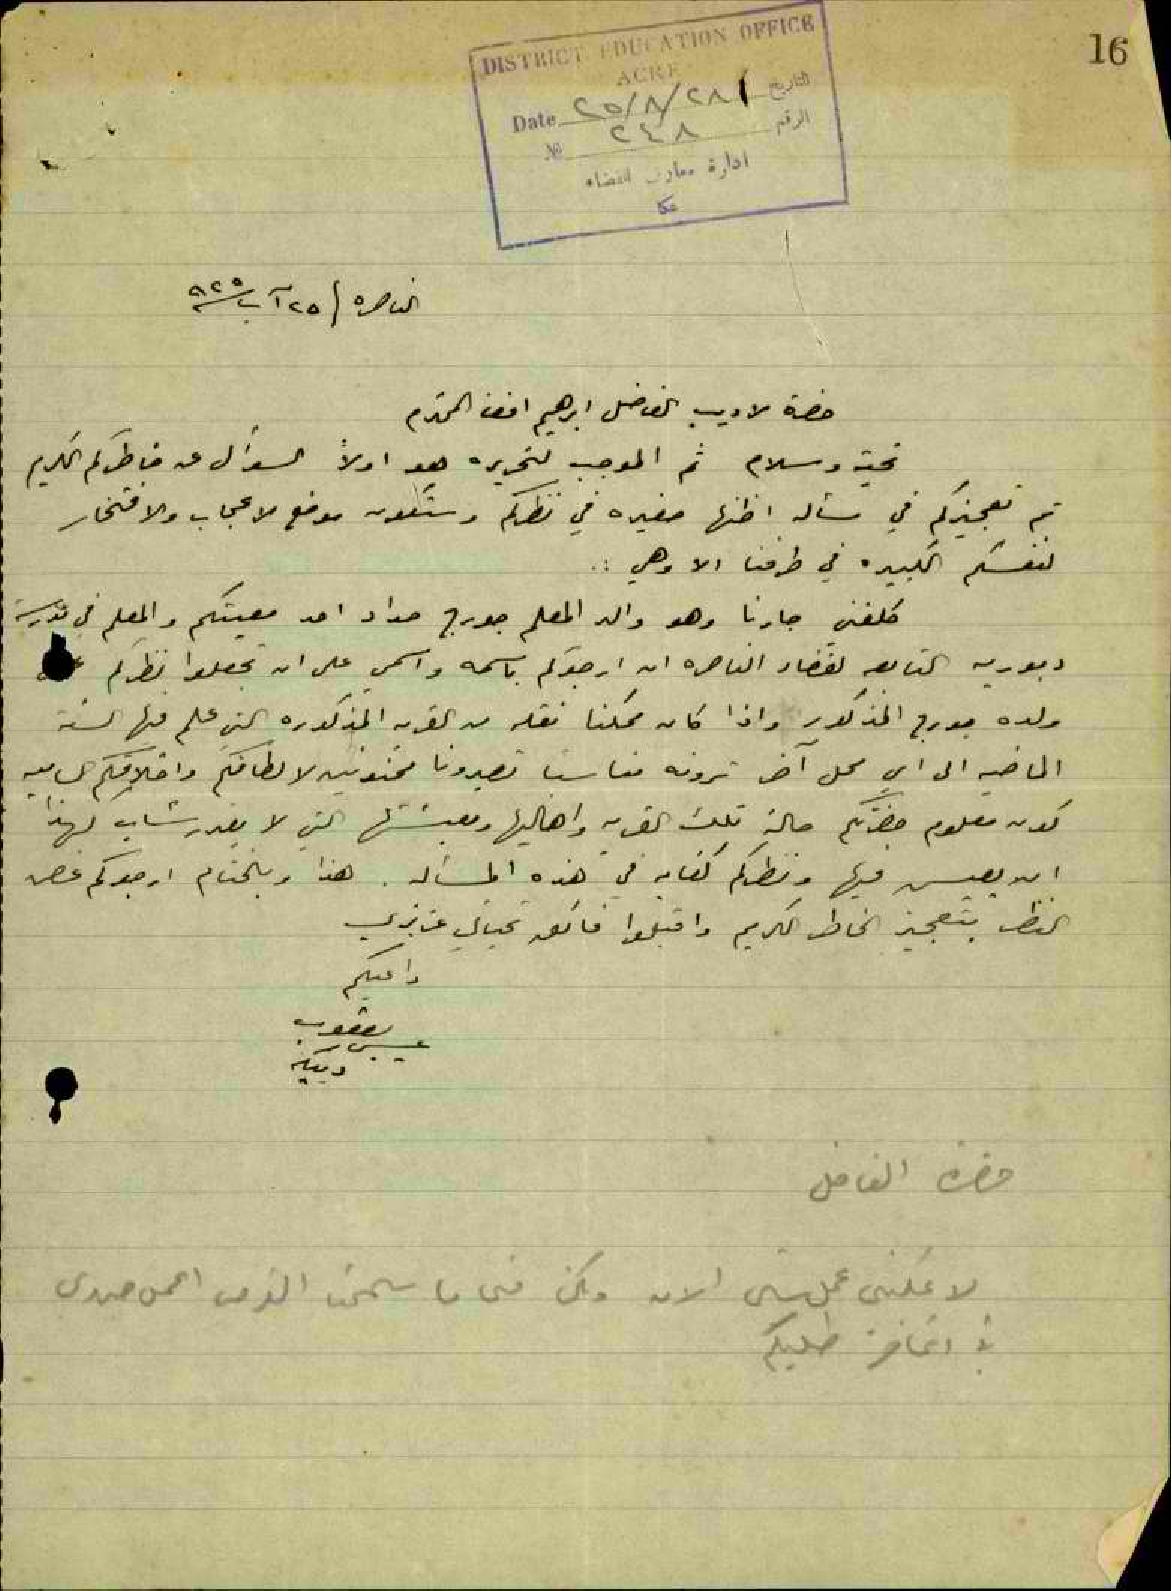 16
DISTRICT EDUCATION OFFICE
ACRE
Date ٢٥/٨/٢٨ التاريخ
№ ٢٤٨ الرقم
ادارة معارف القضاء
عكا
الناصره / ٢٥ آب ٩٢٥
حضرة الاديب الفاضل ابرهيم افندي المحترم
تحية وسلام ثم الموجب لتحريره هو اولاً السؤال عن خاطركم الكريم
ثم تعجيزكم في مسأله اظنها صغيره في نظركم وستكون موضع الاعجاب والافتخار
لنفسكم الكبيره في طرفنا الا وهي :.
كلفني جارنا وهو والد المعلم جورج حداد احد معيتكم والمعلم في مدرسة
دبوريه التابعه لقضاء الناصره ان ارجوكم باسمه واسمي على ان تجعلوا نظركم على
ولده جورج المذكور واذا كان ممكنا نقله من القريه المذكوره التي علم فيها السنة
الماضيه الى اي محل آخر ترونه مناسبا تصيرونا ممنونين لالطافكم واخلاقكم الساميه
كون معلوم حضرتكم حالة تلك القريه واهاليها ومعيشتها التي لا يقدر شاب كهذا
ان يعيش فيها ونظركم كفايه في هذه المسأله . هذا وبالختام ارجوكم غض
النظر بتعجيز الخاطر الكريم واقبلوا فائق تحياتي عزيزي
داعيكم
يعقوب
عيسى
حضرة الفاضل
لا يمكنني عمل شي الان ولكن متى ما سمحت الفرص اعمل جهدي
في طلبكم